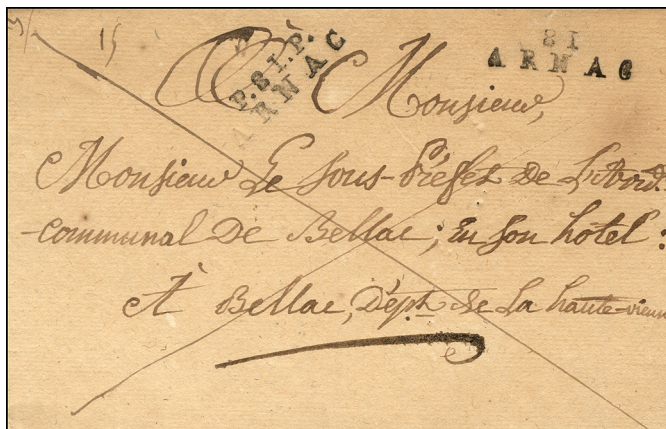 15
P.81.P.
ARNAC
81
ARNAC
A Monsieur,
Monsieur Le Sous-Préfet De L'Arrd.
-communal De Bellac; En Son hotel:
A Bellac, Dépt. De La haute-vienn